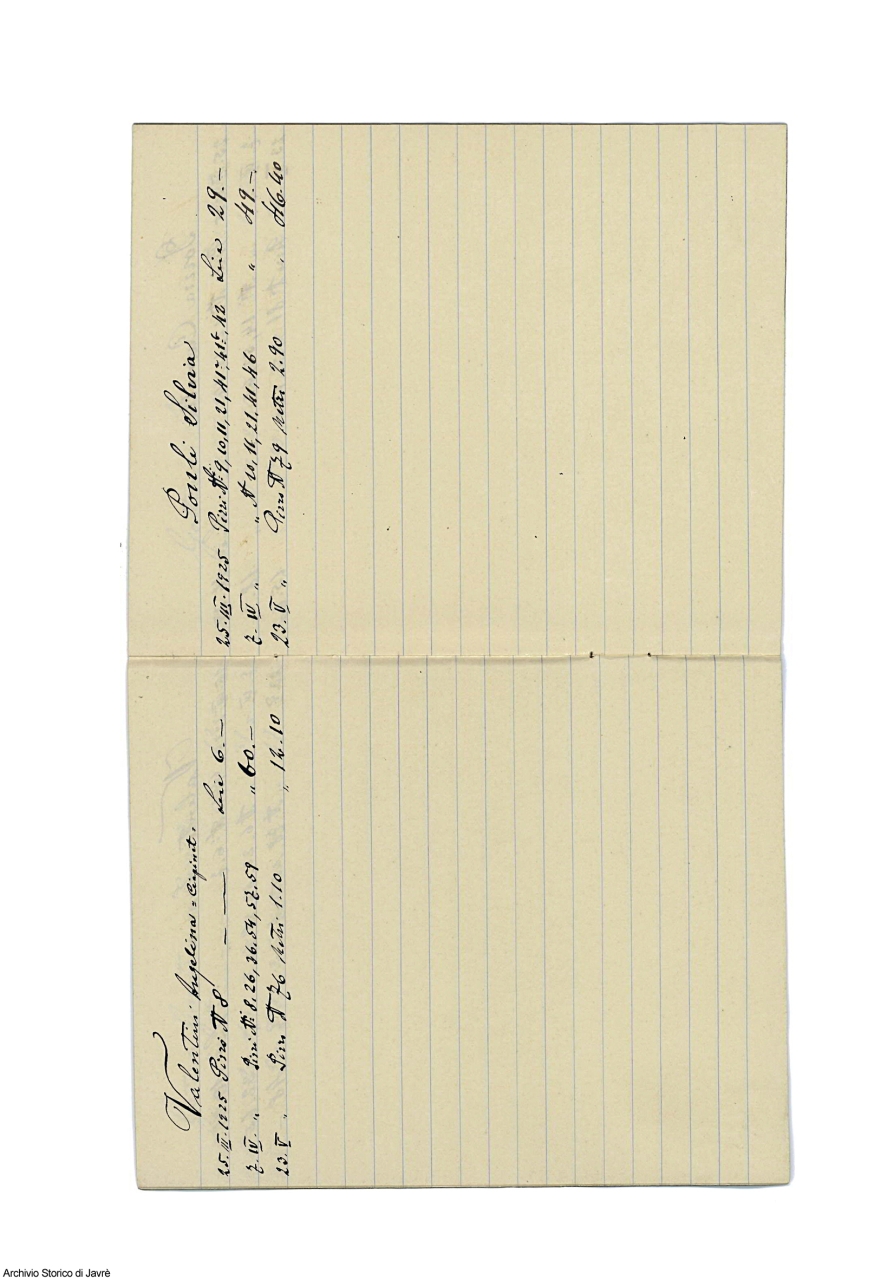 Valentini Angelina =
25.III.1925 Pizzi N 8 — — Lire 6.—
7.IV. " Pizzi Ni 8, 26, 36, 54, 57, 59 " 60.—
23.V " Pizzo N 76 Metri 1.10 " 12.10
Poli Silvia
25.III.1925 Pizzi Ni 9, 10, 11, 21, 41, 41, 42 Lire 29.—
7.IV " " N 10, 11, 21, 41, 46 " 49.—
23.V " Pizzo N 79 Metri 2.90 " 46.40
Archivio Storico di Javrè